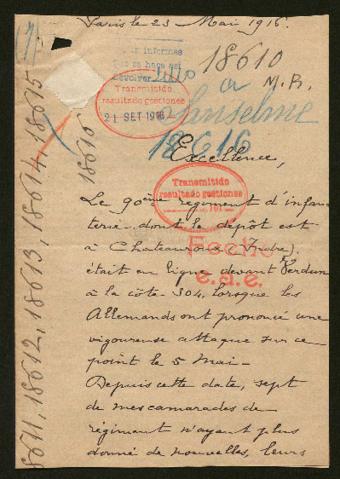 Paris le 23 Mai 1916.
informes
18610
M.R.
a
Anselme
18616
Transmitido
resultado gestiones
21 SET 1916
18610
8611, 18612, 18613, 18614, 18615
Excellence,
Transmitido
resultado gestiones
Le 90ème régiment d'infan
terie dont le dépôt est
à Chateauroux (Indre).
Fecho
était en ligne devant Verdun
e.a.e.
à la côte 304, lorsque les
Allemands ont prononcé une
vigoureuse attaque sur ce
point le 5 Mai-
Depuis cette date, sept
de mes camarades de
régiment n'ayant plus
donné de nouvelles, leurs